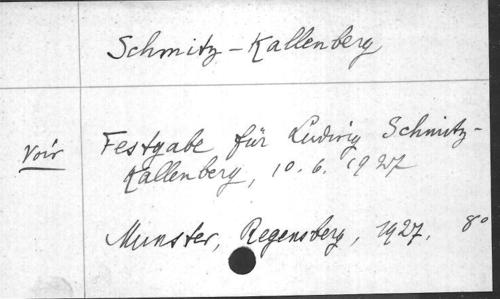 Schmitz-Kallenberg
Voir
Festgabe für Ludwig Schmitz-
Kallenberg, 10. 6. 1927
Munster, Regensberg, 1927. 8°